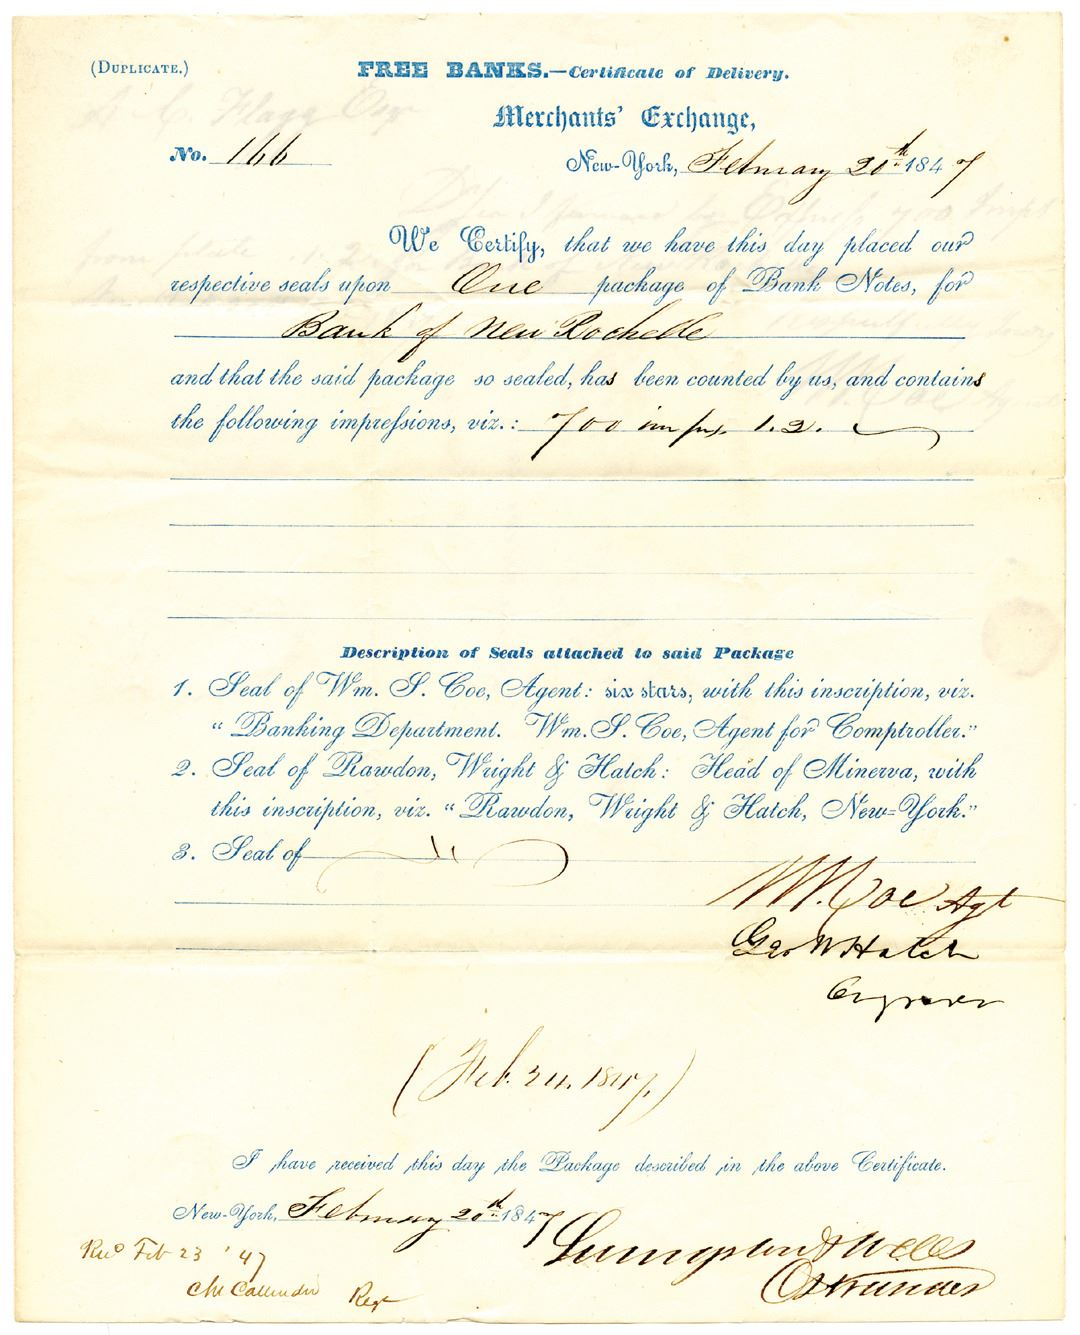 (Duplicate.)
FREE BANKS.—Certificate of Delivery.
Merchants' Exchange,
No. 166
New-York, February 20th 1847
We Certify, that we have this day placed our
respective seals upon One package of Bank Notes, for
Bank of New Rochelle
and that the said package so sealed, has been counted by us, and contains
the following impressions, viz.: 700 imps. 1.2.
Description of Seals attached to said Package
1. Seal of Wm. S. Coe, Agent: six stars, with this inscription, viz.
“Banking Department. Wm. S. Coe, Agent for Comptroller.”
2. Seal of Rawdon, Wright & Hatch: Head of Minerva, with
this inscription, viz. “Rawdon, Wright & Hatch, New-York.”
3. Seal of
W. Coe Agt
Geo W Hatch
Engraver
(Feb. 24. 1847.)
I have received this day the Package described in the above Certificate.
New-York, February 20th 1847
Livingston & Wells
Ostrander
Recd Feb 23 '47
Regr